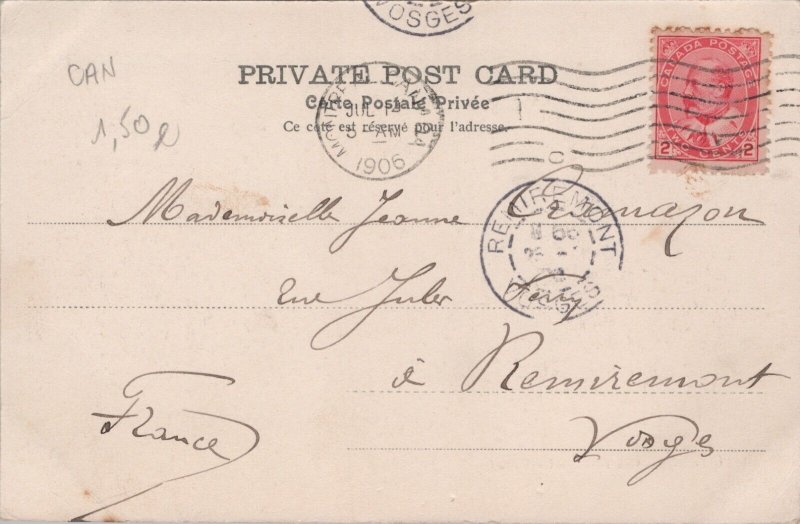 VOSGES
CAN
1,50
PRIVATE POST CARD
Carte Postale Privée
Ce coté est réservé pour l'adresse.
MONTREAL CANADA
JUL 14
AM
1906
CANADA POSTAGE
2 TWO CENTS 2
Mademoiselle Jeanne
REMIREMONT
VOSGES
Rue Jules Ferry
à Remiremont
Vosges
France